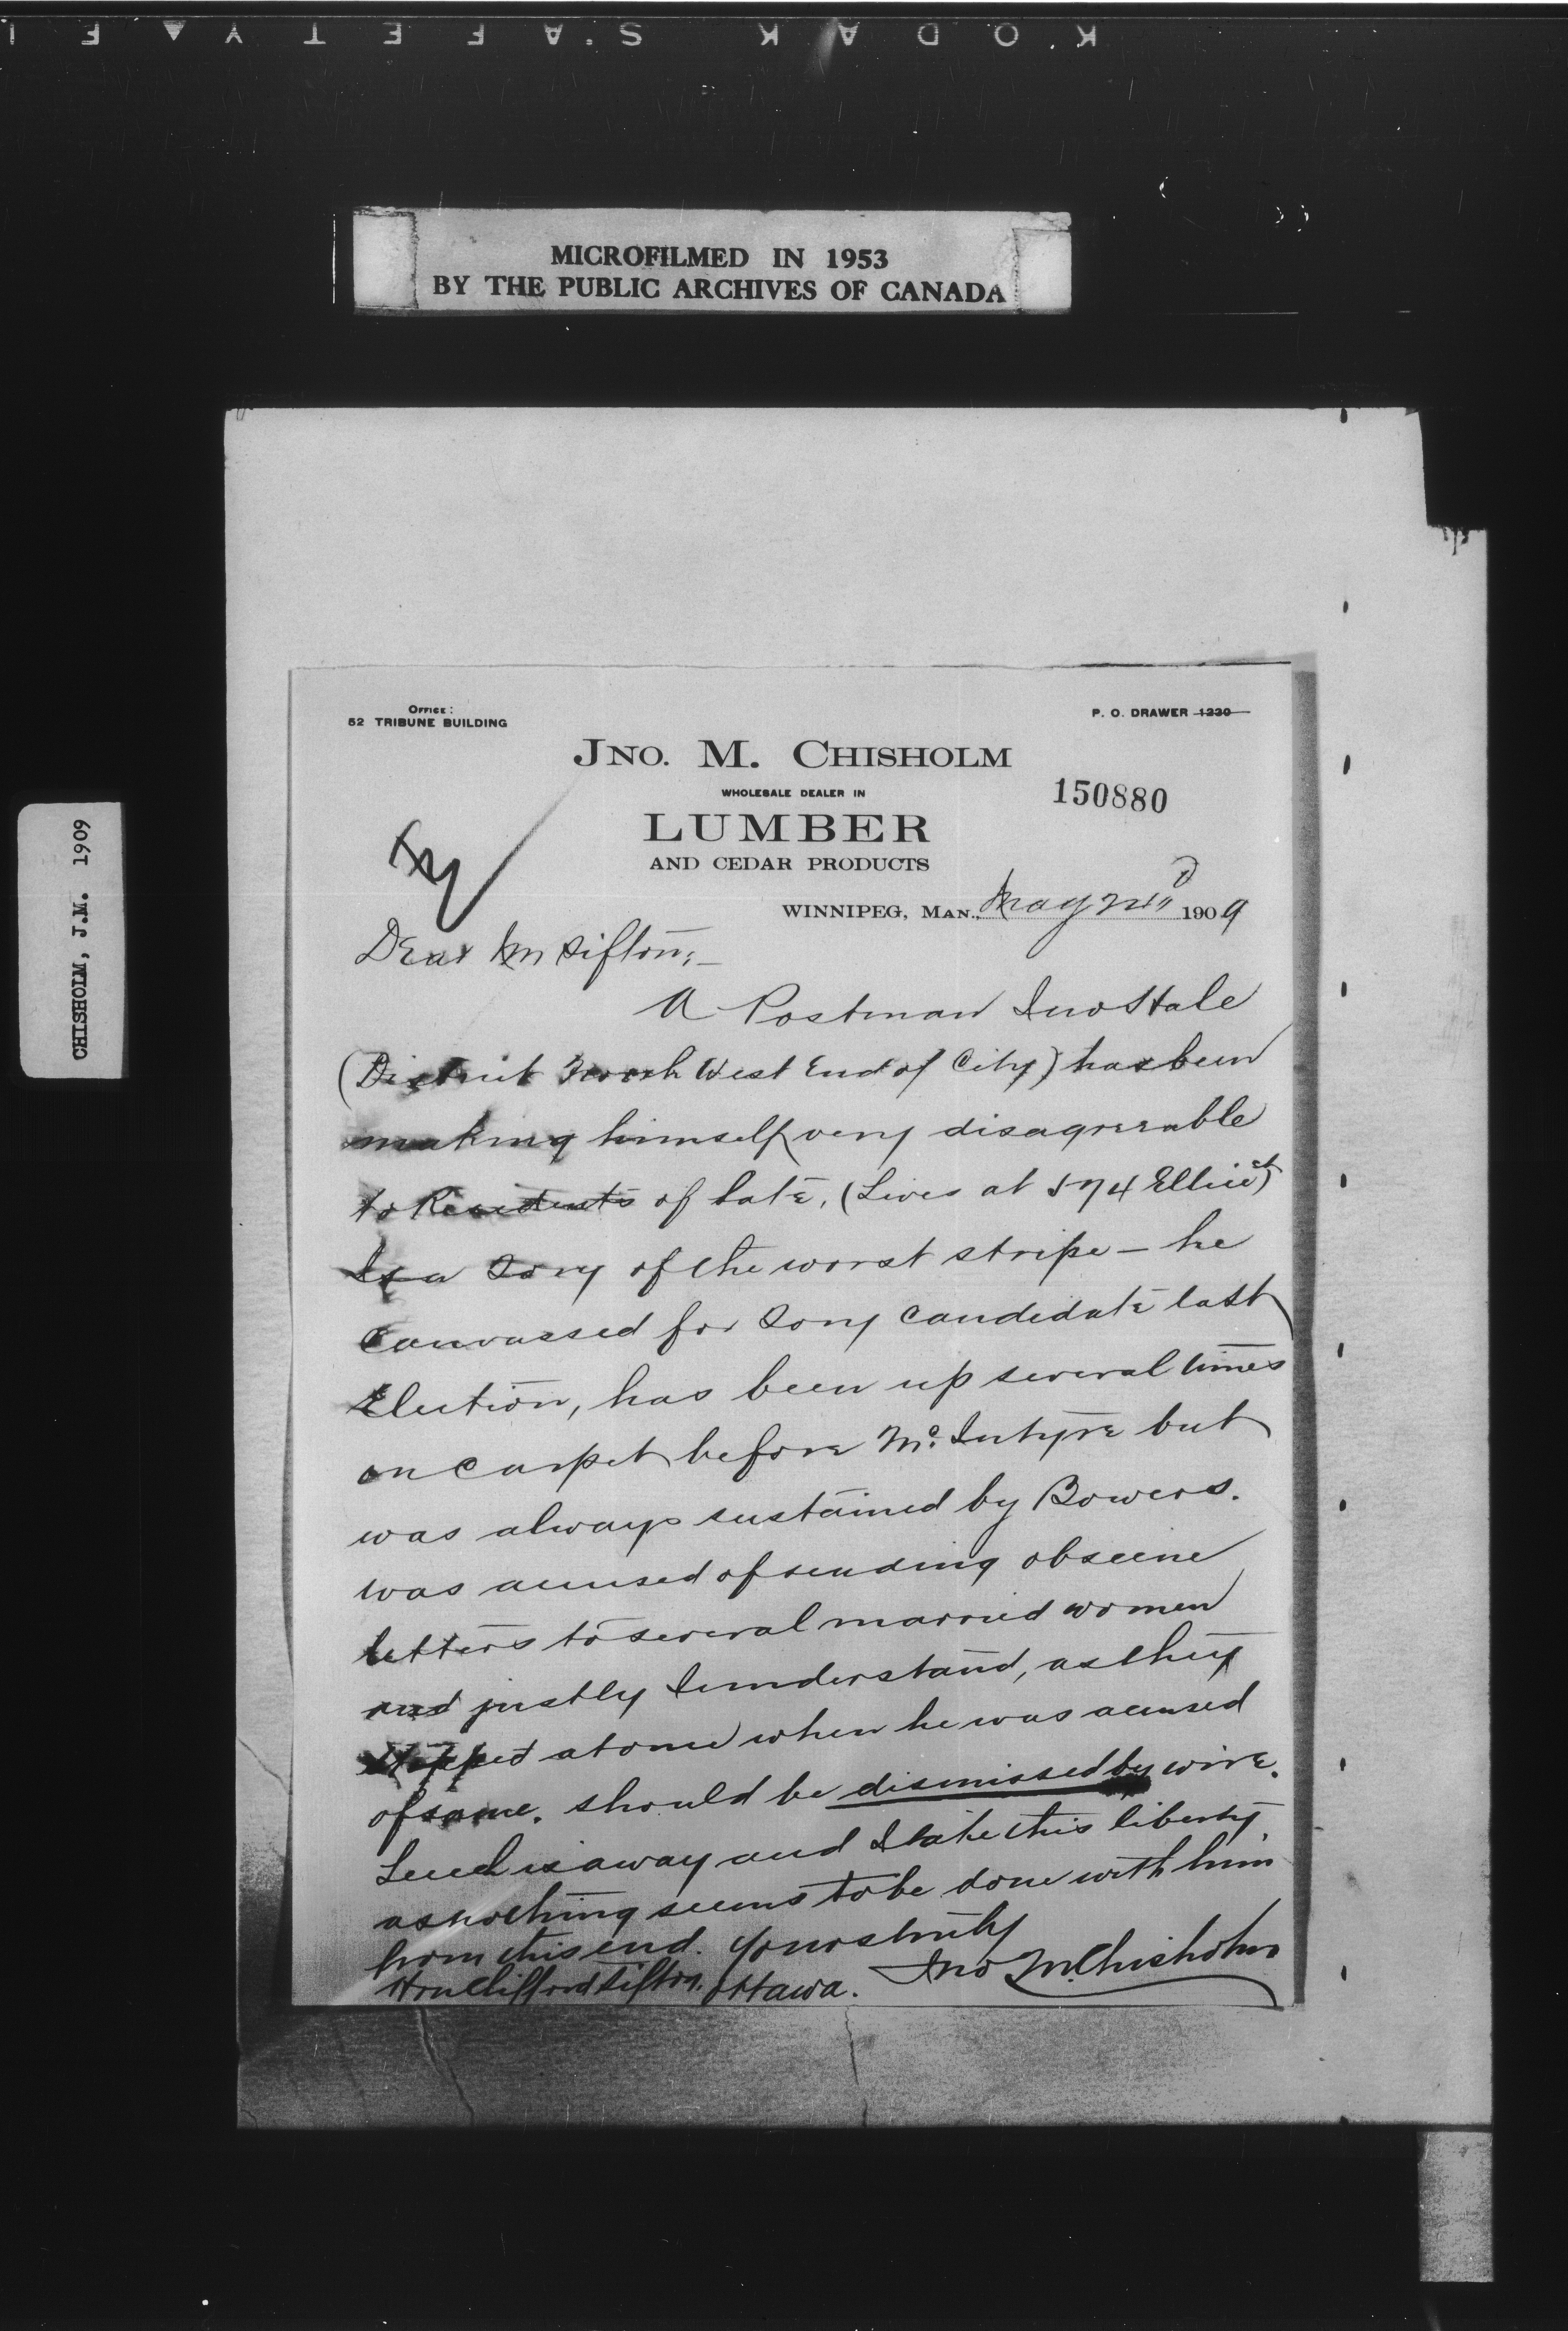 KODAK SAFETY
MICROFILMED IN 1953
BY THE PUBLIC ARCHIVES OF CANADA
CHISHOLM, J.M. 1909
OFFICE:
52 TRIBUNE BUILDING
P. O. DRAWER 1230
JNO. M. CHISHOLM
WHOLESALE DEALER IN
150880
LUMBER
AND CEDAR PRODUCTS
WINNIPEG, MAN., May 1909
Dear Mr Sifton:—
A Postman Jno Hale
(District North West End of City) has been
making himself very disagreeable
to Residents of late, (Lives at 574 Ellice St)
Is a Tory of the worst stripe — he
Canvassed for Tory Candidate last
Election, has been up several times
on Carpet before Mc.Intyre but
was always sustained by Bowers.
was accused of sending obscene
letters to several married women
and justly I understand, as they
stopped at once when he was accused
of same. should be dismissed by wire.
Leech is away and I take this liberty
as nothing seems to be done with him
from this end. Yours truly
Hon Clifford Sifton, Ottawa. Jno M. Chisholm